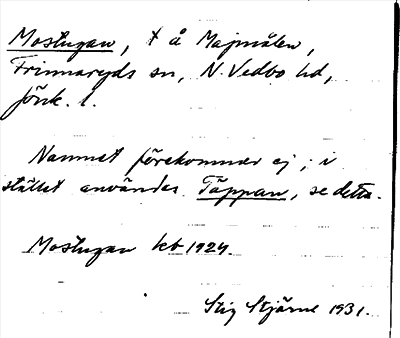 Mostugan, t å Majmålen,
Frinnaryds sn, N. Vedbo hd,
Jönk. l.
Namnet förekommer ej; i
stället användes Täppan, se detta.
Mostugan kb 1924.
Stig Stjärne 1931.